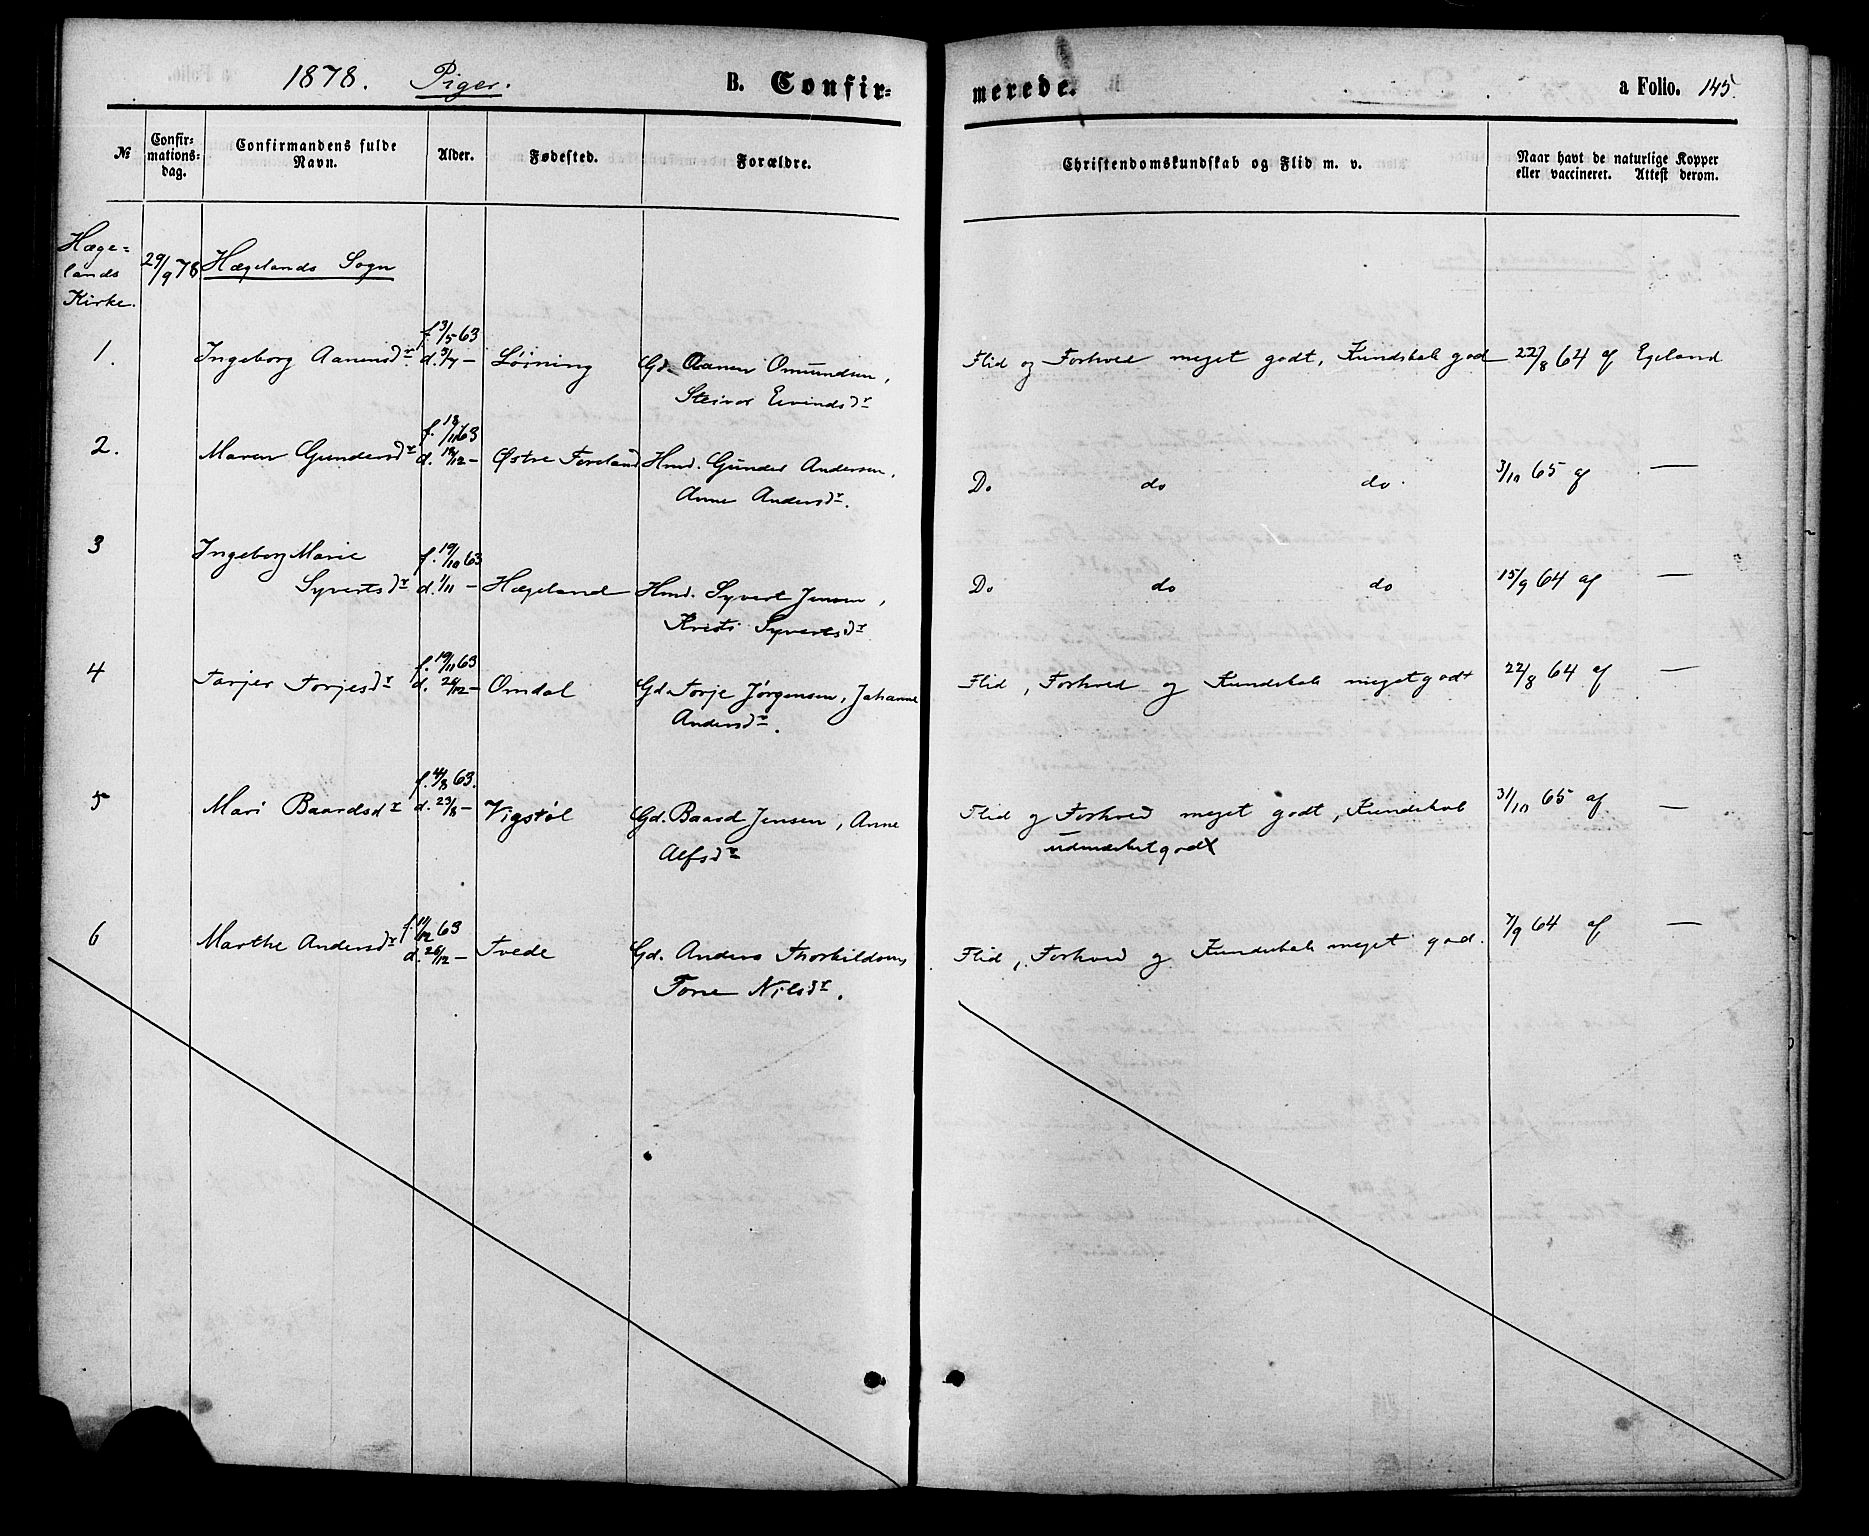 1878. Piger. B. Confir=
merede. a Folio. 145.
№ Confir=mations=dag. Confirmandens fulde Navn. Alder. Fødested. Forældre.
Christendomskundskab og Flid m. v. Naar havt de naturlige Kopper eller vaccineret. Attest derom.
Hæge=
lands
Kirke.
29/9 78 Hægelands Sogn
f. 3/5 63
1. Ingeborg Aanensdr. d. /7 – Løining Gd. Aanen Omundsen,
Steivor Eivindsdr
Flid og Forhold meget godt, Kundskab god 22/8 64 af Egeland
f. 18/11 63
2. Maren Gundersdr d. 18/12 – Østre Foreland Hmd. Gunder Andersen,
Anne Andersdr.
Do do do. 3/10 65 af —
3 Ingeborg Marie f. 19/10 63
Syvertsdr d. 1/11 – Hægeland Hmd. Syvert Jensen,
Kristi Syvertsdr
Do do do 15/9 64 af —
f. 19/11 63
4 Tarjer Torjesdr d. 26/12 – Omdal Gd. Torje Jørgensen, Johanne
Andersdr.
Flid, Forhold og Kundskab meget godt 22/8 64 af —
f. 4/8 63.
5 Mari Baardsdr d. 23/8 – Vigstøl Gd. Baard Jensen, Anne
Alfsdr
Flid og Forhold meget godt, Kundskab 31/10 65 af —
udmærket godt
f. 14/12 63
6 Marthe Andersdr d. 26/12 – Tvede Gd. Anders Thorkildsen,
Tone Nilsdr.
Flid, Forhold og Kundskab meget god. 7/9 64 af —